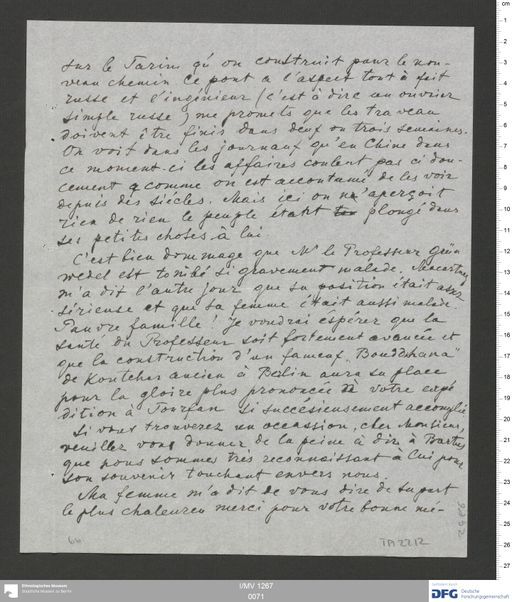 sur le Tarim qu'on construit pour le nou-
veau chemin. Ce pont a l'aspect tout à fait
russe et l'ingénieur (c'est à dire un ouvrier
simple russe) me promets que les traveau
doivent être finis dans deux ou trois semaines.
On voit dans les journaux qu'en Chine dans
ce moment-ci les affaires coulent pas ci dou-
cement comme on est accoutumé de les voir
depuis des siècles. Mais ici on n'aperçoit
rien de rien le peuple étant plongé dans
ses petites choses à lui.
C'est bien dommage que Mr le Professeur Grün
wedel est tombé si gravement malade. Macartney
m'a dit l'autre jour que sa position était assez
sirieuse et que sa femme était aussi malade
Pauvre famille! Je voudrai éspérer que la
santé du Professeur soit fortement avancée et
que la construction d'un fameux "Bouddhana"
de Koutchar ancien à Berlin aura sa place
pour la gloire plus prononcée de votre expé
dition à Tourfan si succésieusement accomplie
Si vous trouverez un occassion, cher Monsieur,
veuillez vous donner de la peine à dir à Bartus
que nous sommes très reconnaissant à lui pour
son souvenir touchant envers nous.
Ma femme m'a dit de vous dire de sa part
le plus chaleureu merci pour votre bonne mé-
TA 2212
Ethnologisches Museum
Staatliche Museen zu Berlin
I/MV 1267
0071
DFG Deutsche
Forschungsgemeinschaft